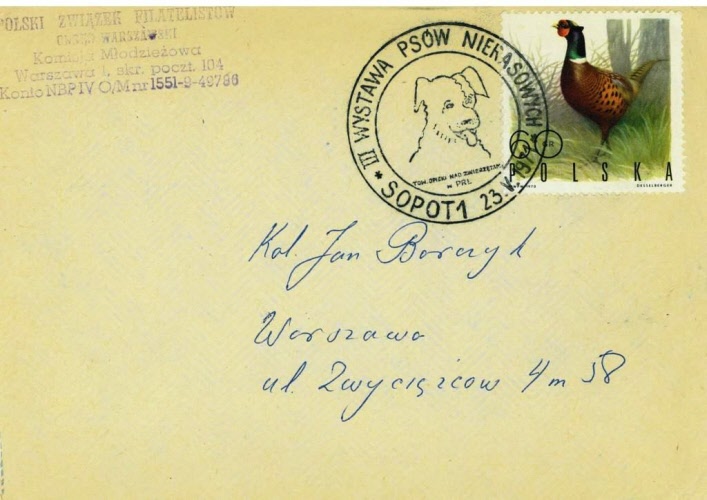 POLSKI ZWIĄZEK FILATELISTÓW
OKRĘG WARSZAWSKI
Komisja Młodzieżowa
Warszawa 1, skr. poczt. 104
Konto NBP IV O/M nr 1551-9-49786
* III WYSTAWA PSÓW NIERASOWYCH *
TOW. OPIEKI NAD ZWIERZĘTAMI
w PRL
SOPOT 1 23.V.
60 GR
POLSKA
Kol. Jan Borczyk
Warszawa
ul. Zwycięzców 4 m 58